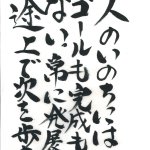 人のいのちには
ゴールも完成も
ない常に発展
途上で次を歩